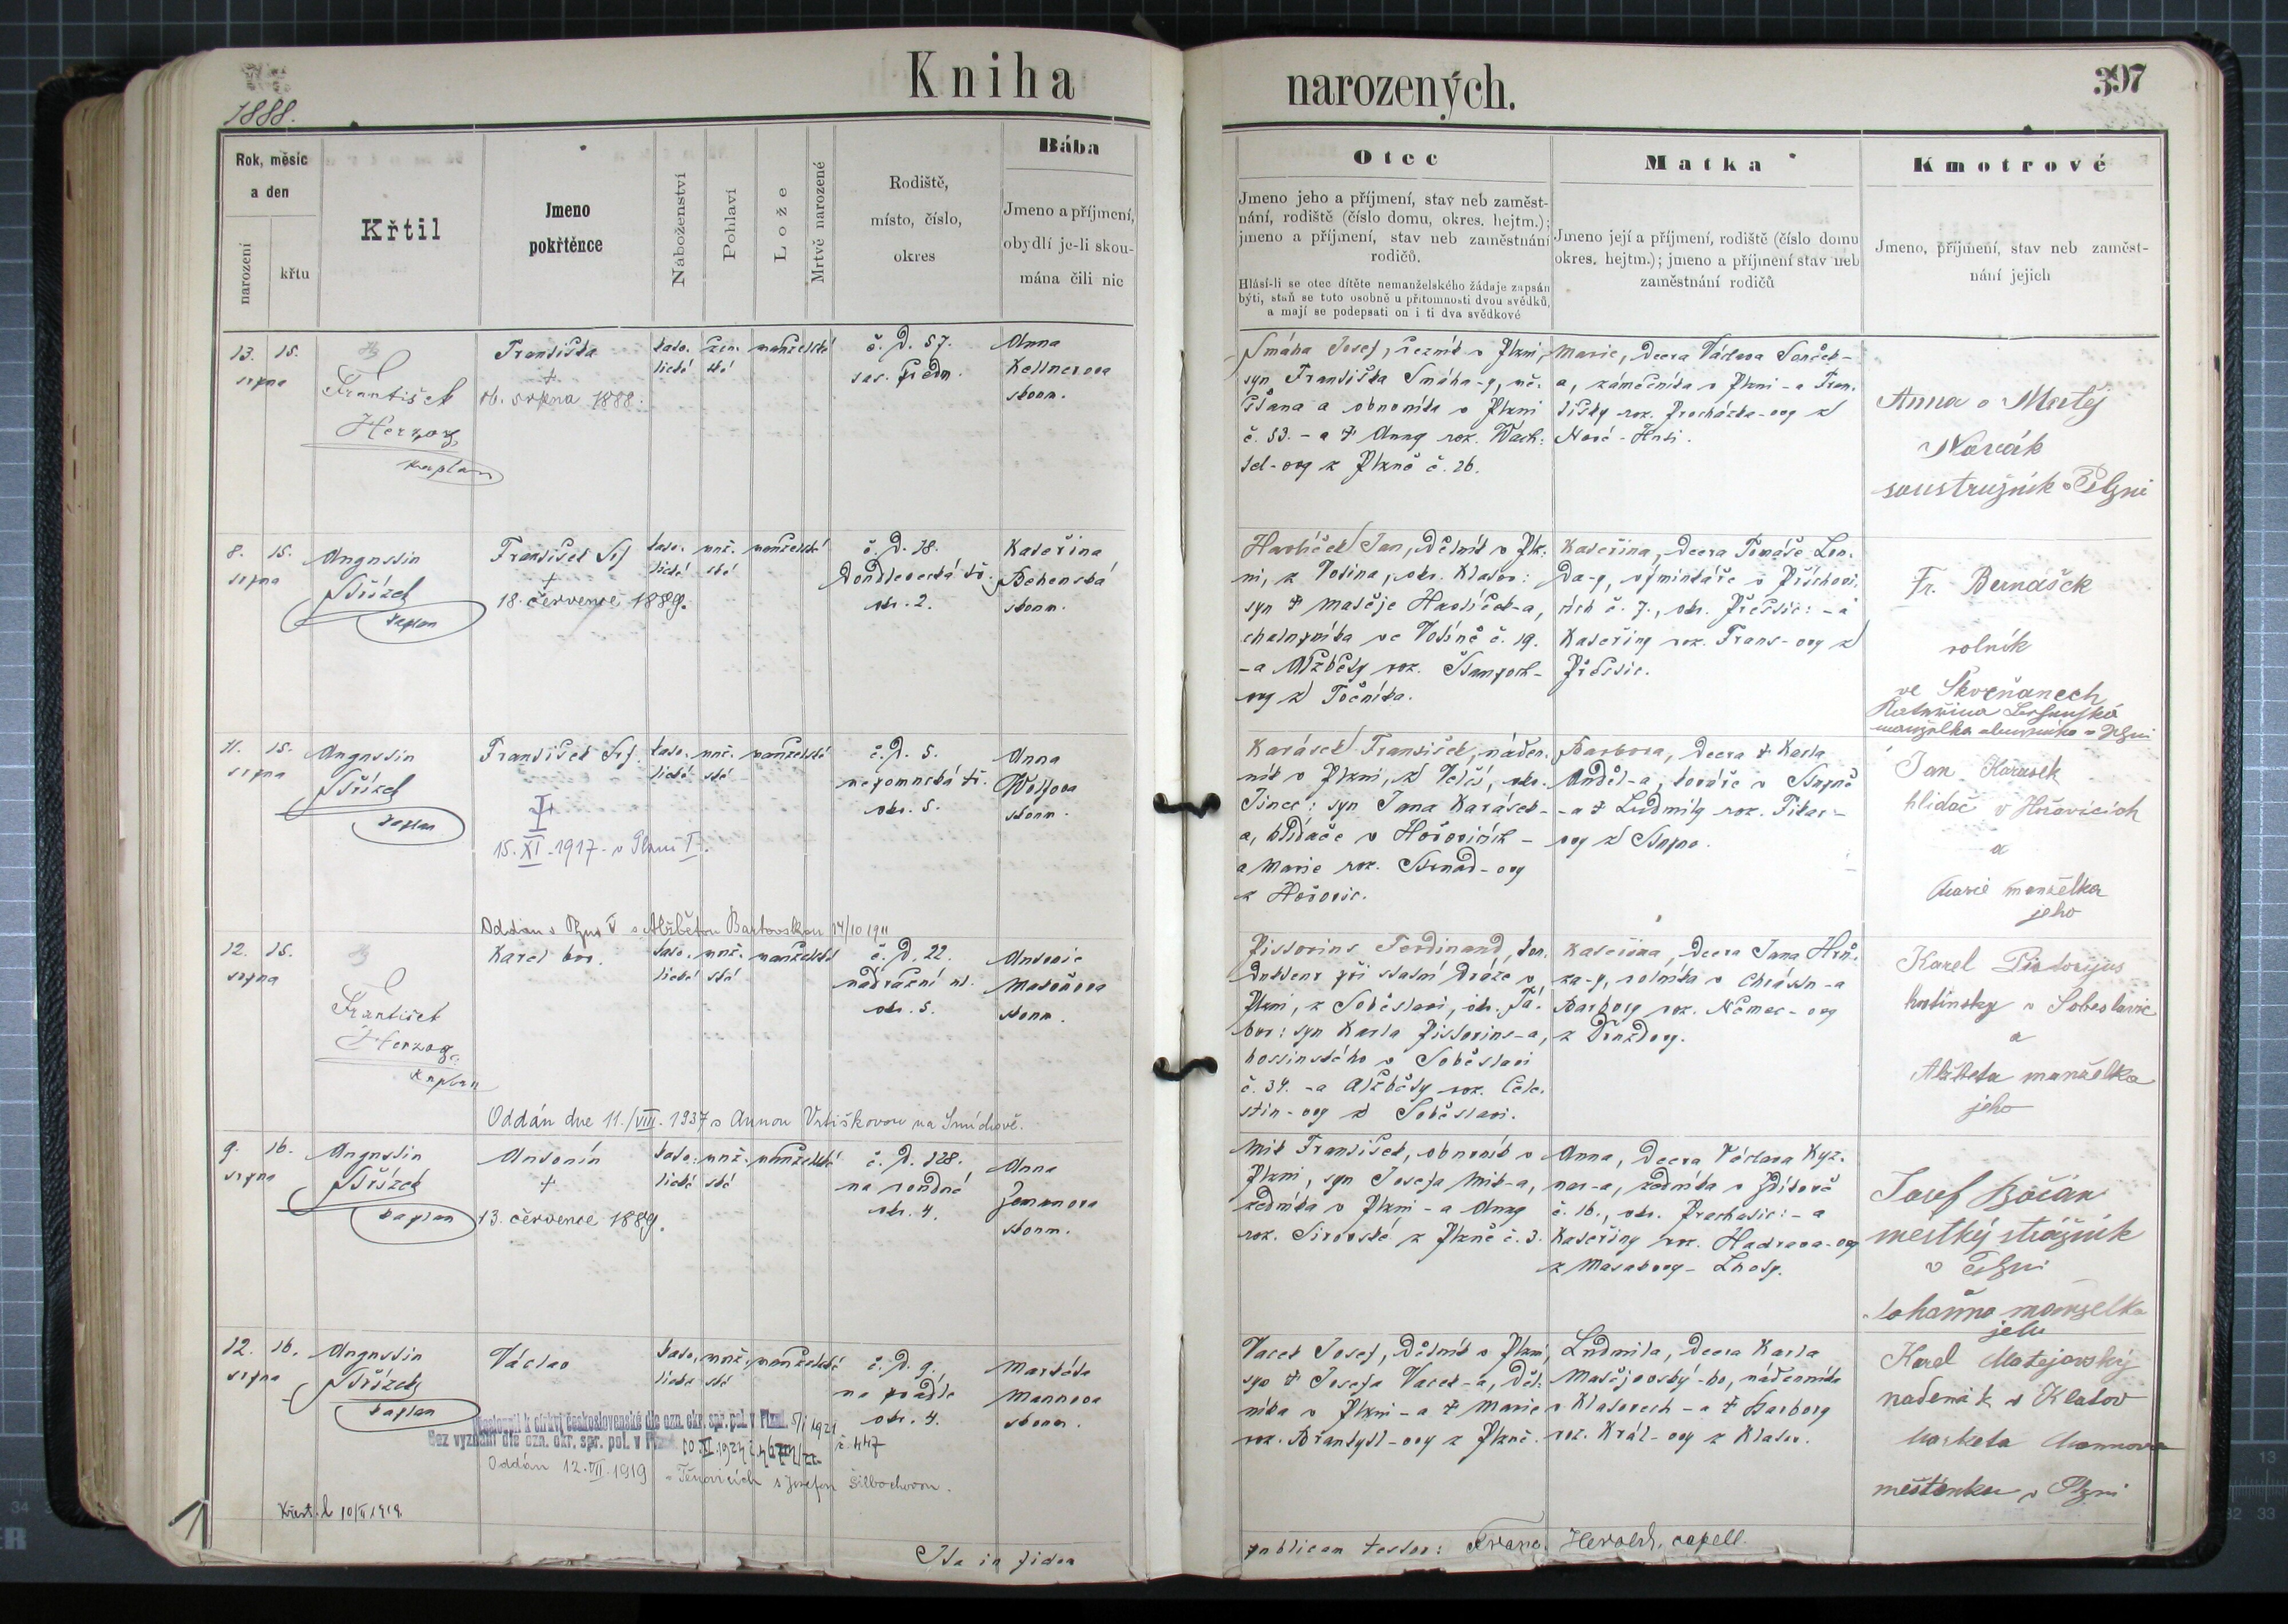 Kniha
narozených.
397
1888.
Rok, měsíc
a den
narození
křtu
Křtil
Jmeno
pokřtěnce
Náboženství
Pohlaví
Lože
Mrtvě narozené
Rodiště,
místo, číslo,
okres
Bába
Jmeno a příjmení,
obydlí je-li skou-
mána čili nic
Otec
Jmeno jeho a příjmení, stav neb zaměst-
nání, rodiště (číslo domu, okres. hejtm.);
jmeno a příjmení, stav neb zaměstnání
rodičů.
Hlásí-li se otec dítěte nemanželského žádaje zapsán
býti, staň se toto osobně u přítomnosti dvou svědků,
a mají se podepsati on i ti dva svědkové
Matka
Jmeno její a příjmení, rodiště (číslo domu
okres. hejtm.); jmeno a příjmení stav neb
zaměstnání rodičů
Kmotrové
Jmeno, příjmení, stav neb zaměst-
nání jejich
13. 15.
srpna
František
Herzog
kaplan
Františka
†
16. srpna 1888.
kato-
lické
žen-
ské
manželské
č. d. 57.
Anna
Kellnerova
zkoum.
Smáha Josef, řezník v Plzni,
syn Františka Smáha-y, mě-
šťana a obuvníka v Plzni
č. 53. - a † Anny roz.
z Plzně č. 26.
Marie, dcera Václava
a, zámečníka v Plzni - a Fran-
tišky roz. Procházka-ovy z
Nové - Huti.
Anna a Matěj
soustružník v Plzni
8. 15.
srpna
Augustin
Střízek
kaplan
František Ser.
†
18. července 1889.
kato-
lické
muž-
ské
manželské
č. d. 18.
Doudlevecká tř.
okr. 2.
Kateřina
Behenská
zkoum.
Havlíček Jan, dělník v Pl-
ni, z Votína, okr. Klatov:
syn † Matěje Havlíček-a,
chalupníka ve Votíně č. 19.
- a Alžběty roz.
ovy z Točníka.
Kateřina, dcera Tomáše Lon-
da-y, výminkáře v Příchovi-
cích č. 7., okr. Přeštic: - a
Kateřiny roz. Frans-ovy z
Přeštic.
Fr. Bernášek
rolník
ve Skvrňanech
Kateřina
manželka obuvníka v Plzni
11. 15.
srpna
Augustin
Střízek
kaplan
František Ser.
†
15. XI. 1917. v Plzni
kato-
lické
muž-
ské
manželské
č. d. 5.
nepomucká tř.
okr. 5.
Anna
Wolfova
zkoum.
Oddán v Plzni s Alžbětou Bartovskou 14/10 1911
Karásek František, náden-
ník v Plzni, z okr.
syn Jana Karásek-
a, hlídače v Hořovicích -
a Marie roz. Brnad-ovy
z Hořovic.
Barbora, dcera † Karla
Anděl-a, kováře v
- a † Ludmily roz.
ovy z
Jan Karásek
hlidač v Hořovicích
a
Marie manželka
jeho
12. 15.
srpna
František
Herzog
kaplan
Karel bor.
kato-
lické
muž-
ské
manželské
č. d. 22.
nádražní ul.
okr. 5.
Antonie
Matoušova
zkoum.
Oddán dne 11./VIII. 1937 s Annou Vrtiškovou na Smíchově.
Pistorius Ferdinand, kon-
dukteur při státní dráze v
Plzni, z Soběslavi, okr. Tá-
bor: syn Karla Pistorius-a,
hostinského v Soběslavi
č. 34. - a Alžběty roz. Cele-
stin-ovy z Soběslavi.
Kateřina, dcera Jana Hrů-
za-y, rolníka v Chrástu - a
Barbory roz. Němec-ovy
z Druzdovy.
Karel Pistorijus
hostinsky v Soběslavie
a
Alžbeta manželka
jeho
9. 16.
srpna
Augustin
Střízek
kaplan
Antonín
†
13. července 1889.
kato-
lické
muž-
ské
manželské
č. d. 128.
na rondné
okr. 4.
Anna
Zemanova
zkoum.
Mik František, obuvník v
Plzni, syn Josefa Mik-a,
zedníka v Plzni - a Anny
roz. Sirovské z Plzně č. 3.
Anna, dcera Václava Kyz-
nar-a, zedníka v Zdíkově
č. 16., okr. Prachatic: - a
Kateřiny roz. Hadrava-ovy
z Masákovy - Lhoty.
Josef Bočán
městký strážník
v Plzni
Johanna manželka
jeho
12. 16.
srpna
Augustin
Střízek
kaplan
Václav
kato-
lické
muž-
ské
manželské
č. d. 9.
na prádle
okr. 4.
Markéta
Mannova
zkoum.
Přestoupil k církvi československé dle ozn. okr. spr. pol. v Plzni 5/I 1921
č. 447
Bez vyznání dle ozn. okr. spr. pol. v Plzni
Oddán 12. VII. 1919 v Těnovicích s Josefou Silbochovou.
Křest. l. 10/V 1919.
Vacek Josef, dělník v Plzni,
syn † Josefa Vacek-a, děl-
níka v Plzni - a † Marie
roz. ovy z Plzně.
Ludmila, dcera Karla
Matějovský-ho, nádeníka
v Klatovech - a † Barbory
roz. Král-ovy z Klatov.
Karel Matejovský
nadeník v Klatov
Marketa Mannova
měštanka v Plzni
Ita in fidem
publicam testor: Franc. Herold, capell.